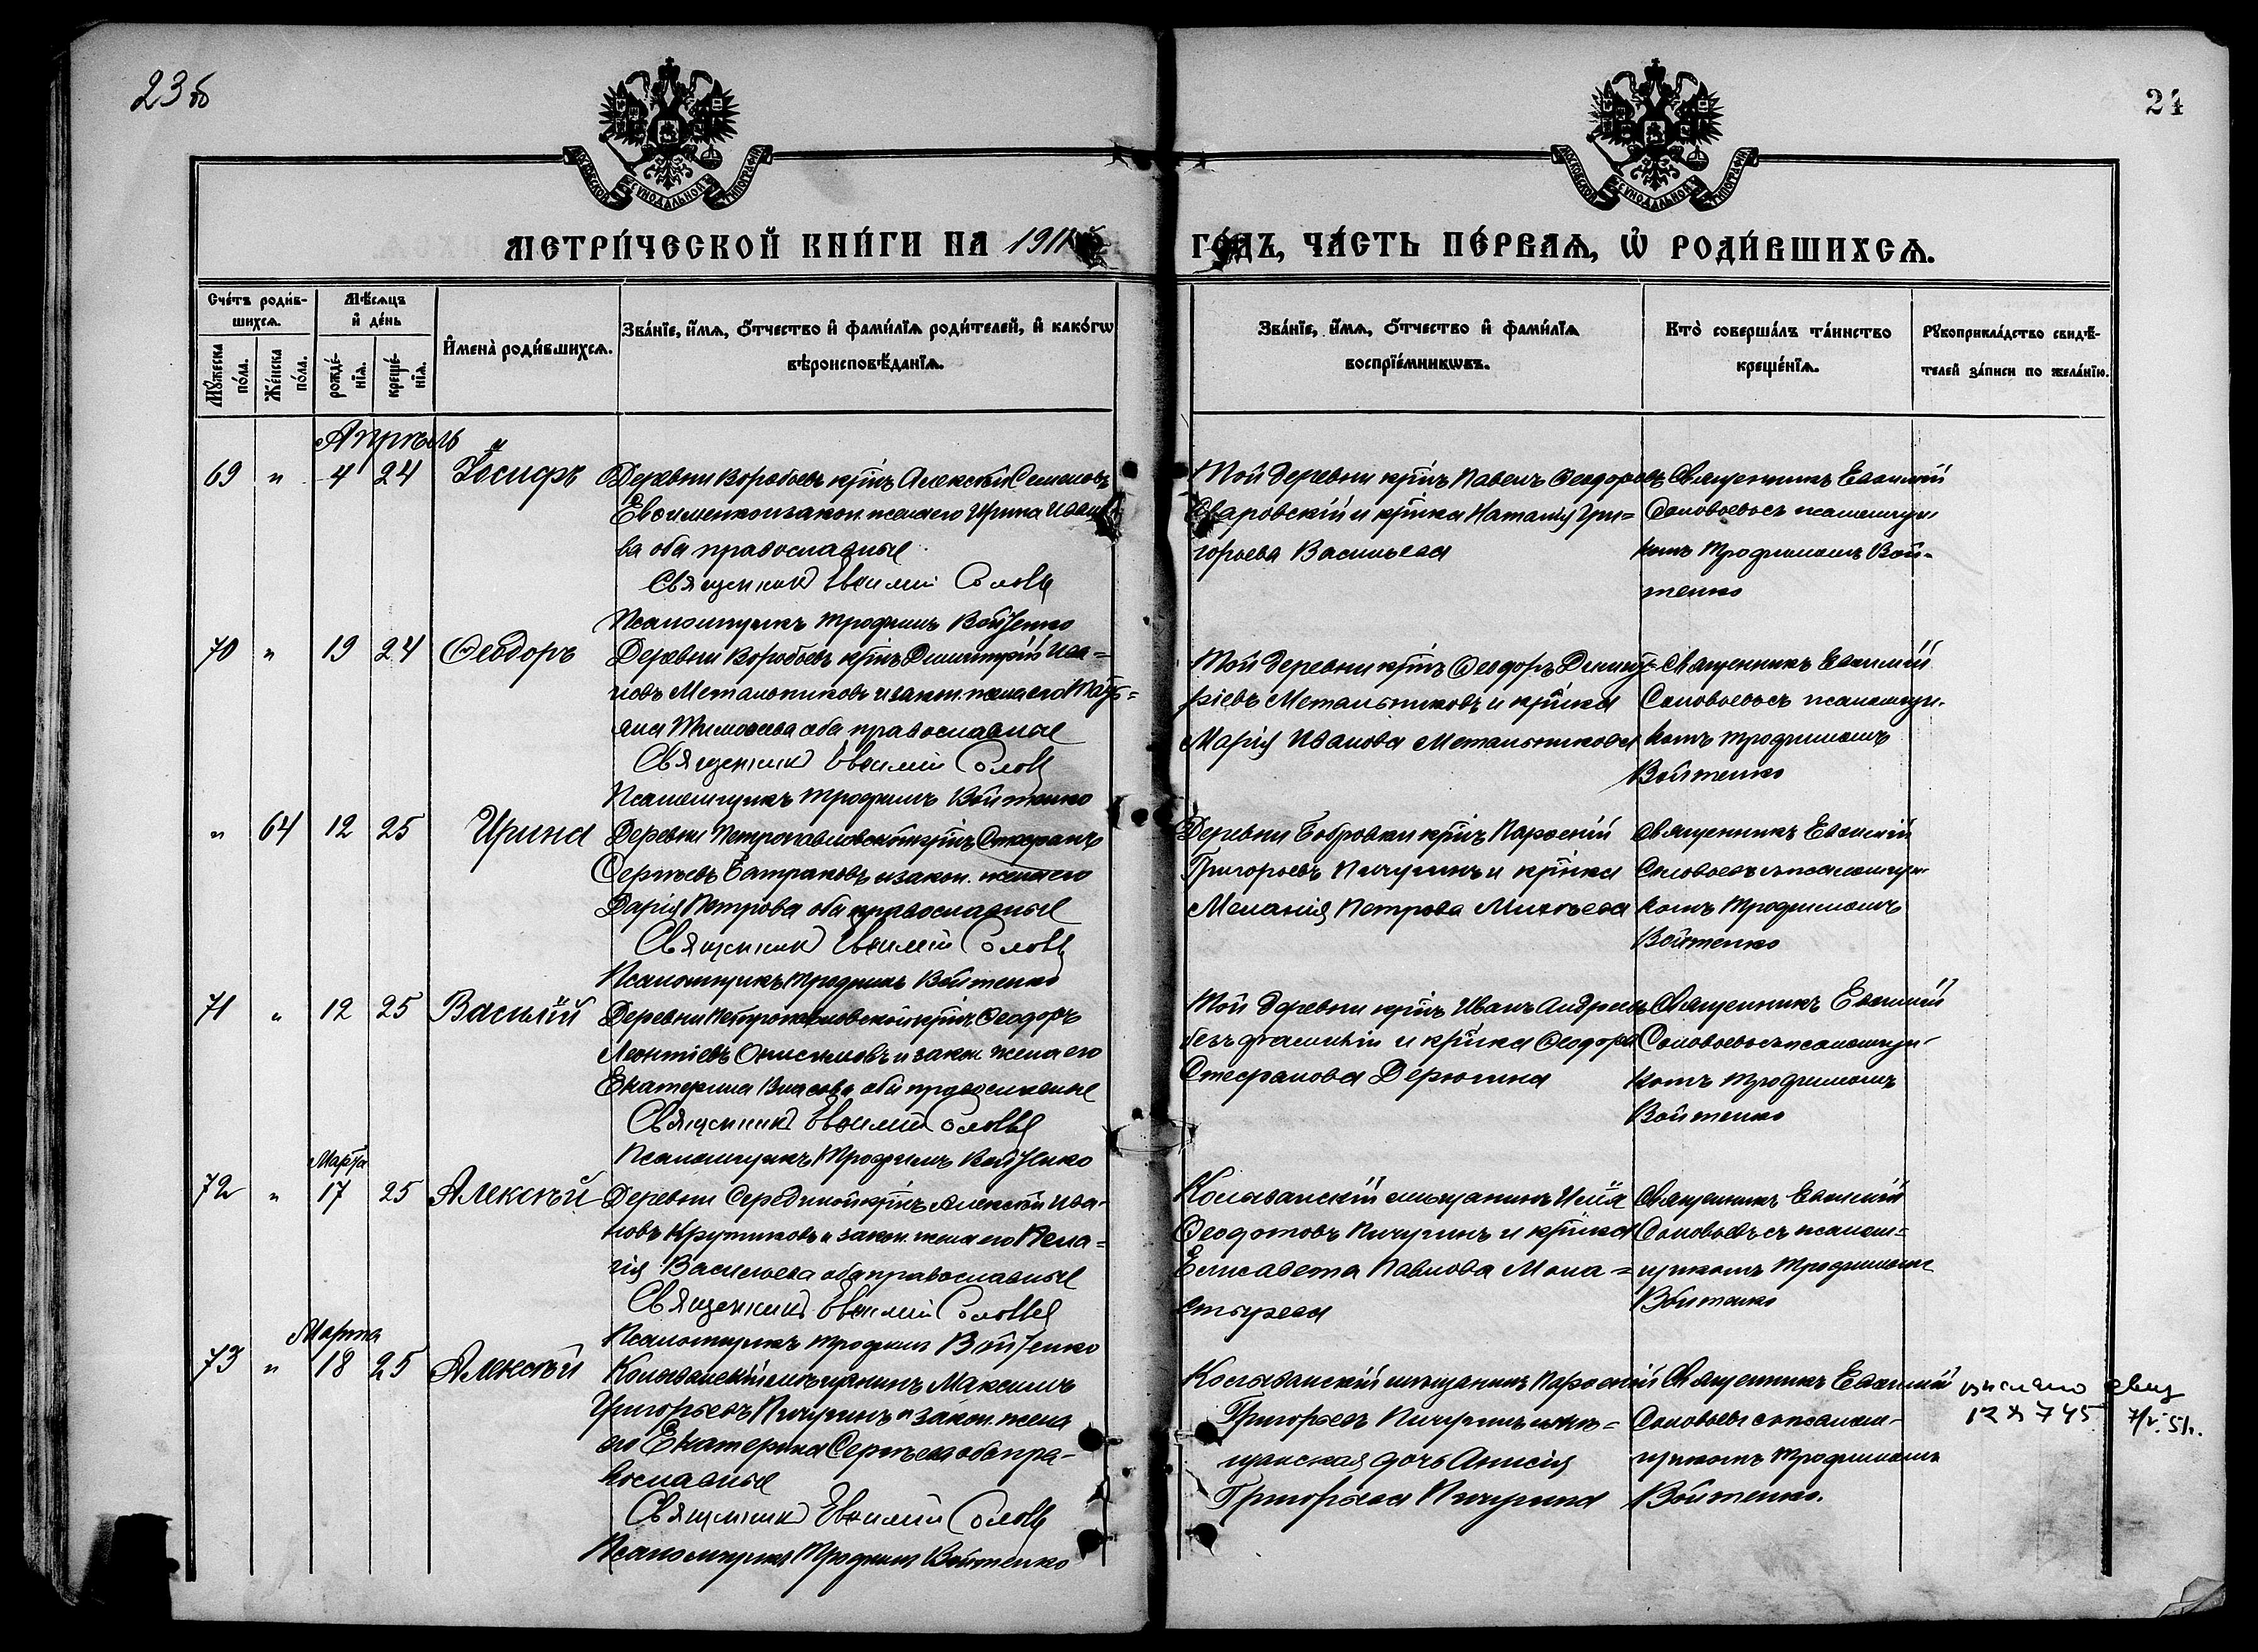 23 об
24
МОСКОВСКОЙ СѴНОДАЛЬНОЙ ТИПОГРАФІИ
МОСКОВСКОЙ СѴНОДАЛЬНОЙ ТИПОГРАФІИ
МЕТРИ́ЧЕСКОЙ КНИ́ГИ НА 1911
ГО́ДЪ, ЧА́СТЬ ПЕ́РВАѦ, Ѡ҆ РОДИ́ВШИХСѦ.
Сче́тъ роди́в-
шихсѧ.
Мѣ́сѧцъ
и҆ де́нь
Мꙋ́жеска
по́ла.
Же́нска
по́ла.
рожде́-
нїѧ.
креще́-
нїѧ.
И҆мена̀ роди́вшихсѧ.
Зва́нїе, и҆́мѧ, ѻ҆́тчество и҆ фами́лїѧ роди́телей, и҆ како́гѡ
вѣроисповѣ́данїѧ.
Зва́нїе, и҆́мѧ, ѻ҆́тчество и҆ фами́лїѧ
воспрїе́мникѡвъ.
Кто̀ соверша́лъ та́инство
креще́нїѧ.
Рꙋкоприкла́дство свидѣ́-
телей за́писи по жела́нїю.
Апрѣль
69 " 4 24 Іосифъ
Деревни Воробьевъ крнъ Алексѣй Семеновъ
Евсименко и закон. жена его Ирина Ивано
ва оба православные
Священникъ Евѳимій Соловь
Псаломщикъ Трофимъ Войтенко
Той деревни крнъ Павелъ Ѳеодоровъ
Сваровскій и крнка Наталія Гри=
горьева Васильева
Священникъ Евѳимій
Соловьевъ съ псаломщи
комъ Трофимомъ Вой-
тенко
70 " 19 24 Ѳеодоръ
Деревни Воробьевъ крнъ Димитрій Ива=
новъ Метальниковъ и закон. жена его Тать=
яна Тимоѳеева оба православные
Священникъ Евѳимій Соловь
Псаломщикъ Трофимъ Войтенко
Той деревни крнъ Ѳеодоръ Димит-
ріевъ Метальниковъ и крнка
Марія Иванова Метальникова
Священникъ Евѳимій
Соловьевъ съ псаломщи-
комъ Трофимомъ
Войтенко
" 64 12 25 Ирина
Деревни Петропавловской крнъ Стефанъ
Сергѣевъ Батраковъ и закон. жена его
Дарія Петрова оба православные
Священникъ Евѳимій Соловь
Псаломщикъ Трофимъ Войтенко
Деревни Бобровки крнъ Парѳеній
Григорьевъ Пичугинъ и крнка
Меланія Петрова Михѣева
Священникъ Евѳимій
Соловьевъ съ псаломщи-
комъ Трофимомъ
Войтенко
71 " 12 25 Василій
Деревни Петропавловской крнъ Ѳеодоръ
Леонтіевъ Онисимовъ и закон. жена его
Екатерина Власова оба православные
Священникъ Евѳимій Соловьев
Псаломщикъ Трофимъ Войтенко
Той деревни крнъ Иванъ Андреевъ
безъ фамиліи и крнка Ѳеодора
Стефанова Дерюгина
Священникъ Евѳимій
Соловьевъ съ псаломщи-
комъ Трофимомъ
Войтенко
Марта
72 " 17 25 Алексѣй
Деревни Серединой крнъ Алексѣй Ива-
новъ Крутиковъ и закон. жена его Пела=
гія Васильева оба православные
Священникъ Евѳимій Соловьев
Псаломщикъ Трофимъ Войтенко
Колыванскій мѣщанинъ Илія
Ѳеодотовъ Пичугинъ и крнка
Елисавета Павлова Мона=
стырева
Священникъ Евѳимій
Соловьевъ съ псалом=
щикомъ Трофимомъ
Войтенко
Марта
73 " 18 25 Алексѣй
Колыванскій мѣщанинъ Максимъ
Григорьевъ Пичугинъ и закон. жена
его Екатерина Сергѣева оба пра-
вославные
Священникъ Евѳимій Соловь
Псаломщикъ Трофимъ Войтенко
Колыванскій мѣщанинъ Парѳеній
Григорьевъ Пичугинъ и мѣ=
щанская дочь Анисія
Григорьева Пичугина
Священникъ Евѳимій
Соловьевъ съ псалом-
щикомъ Трофимомъ
Войтенко.